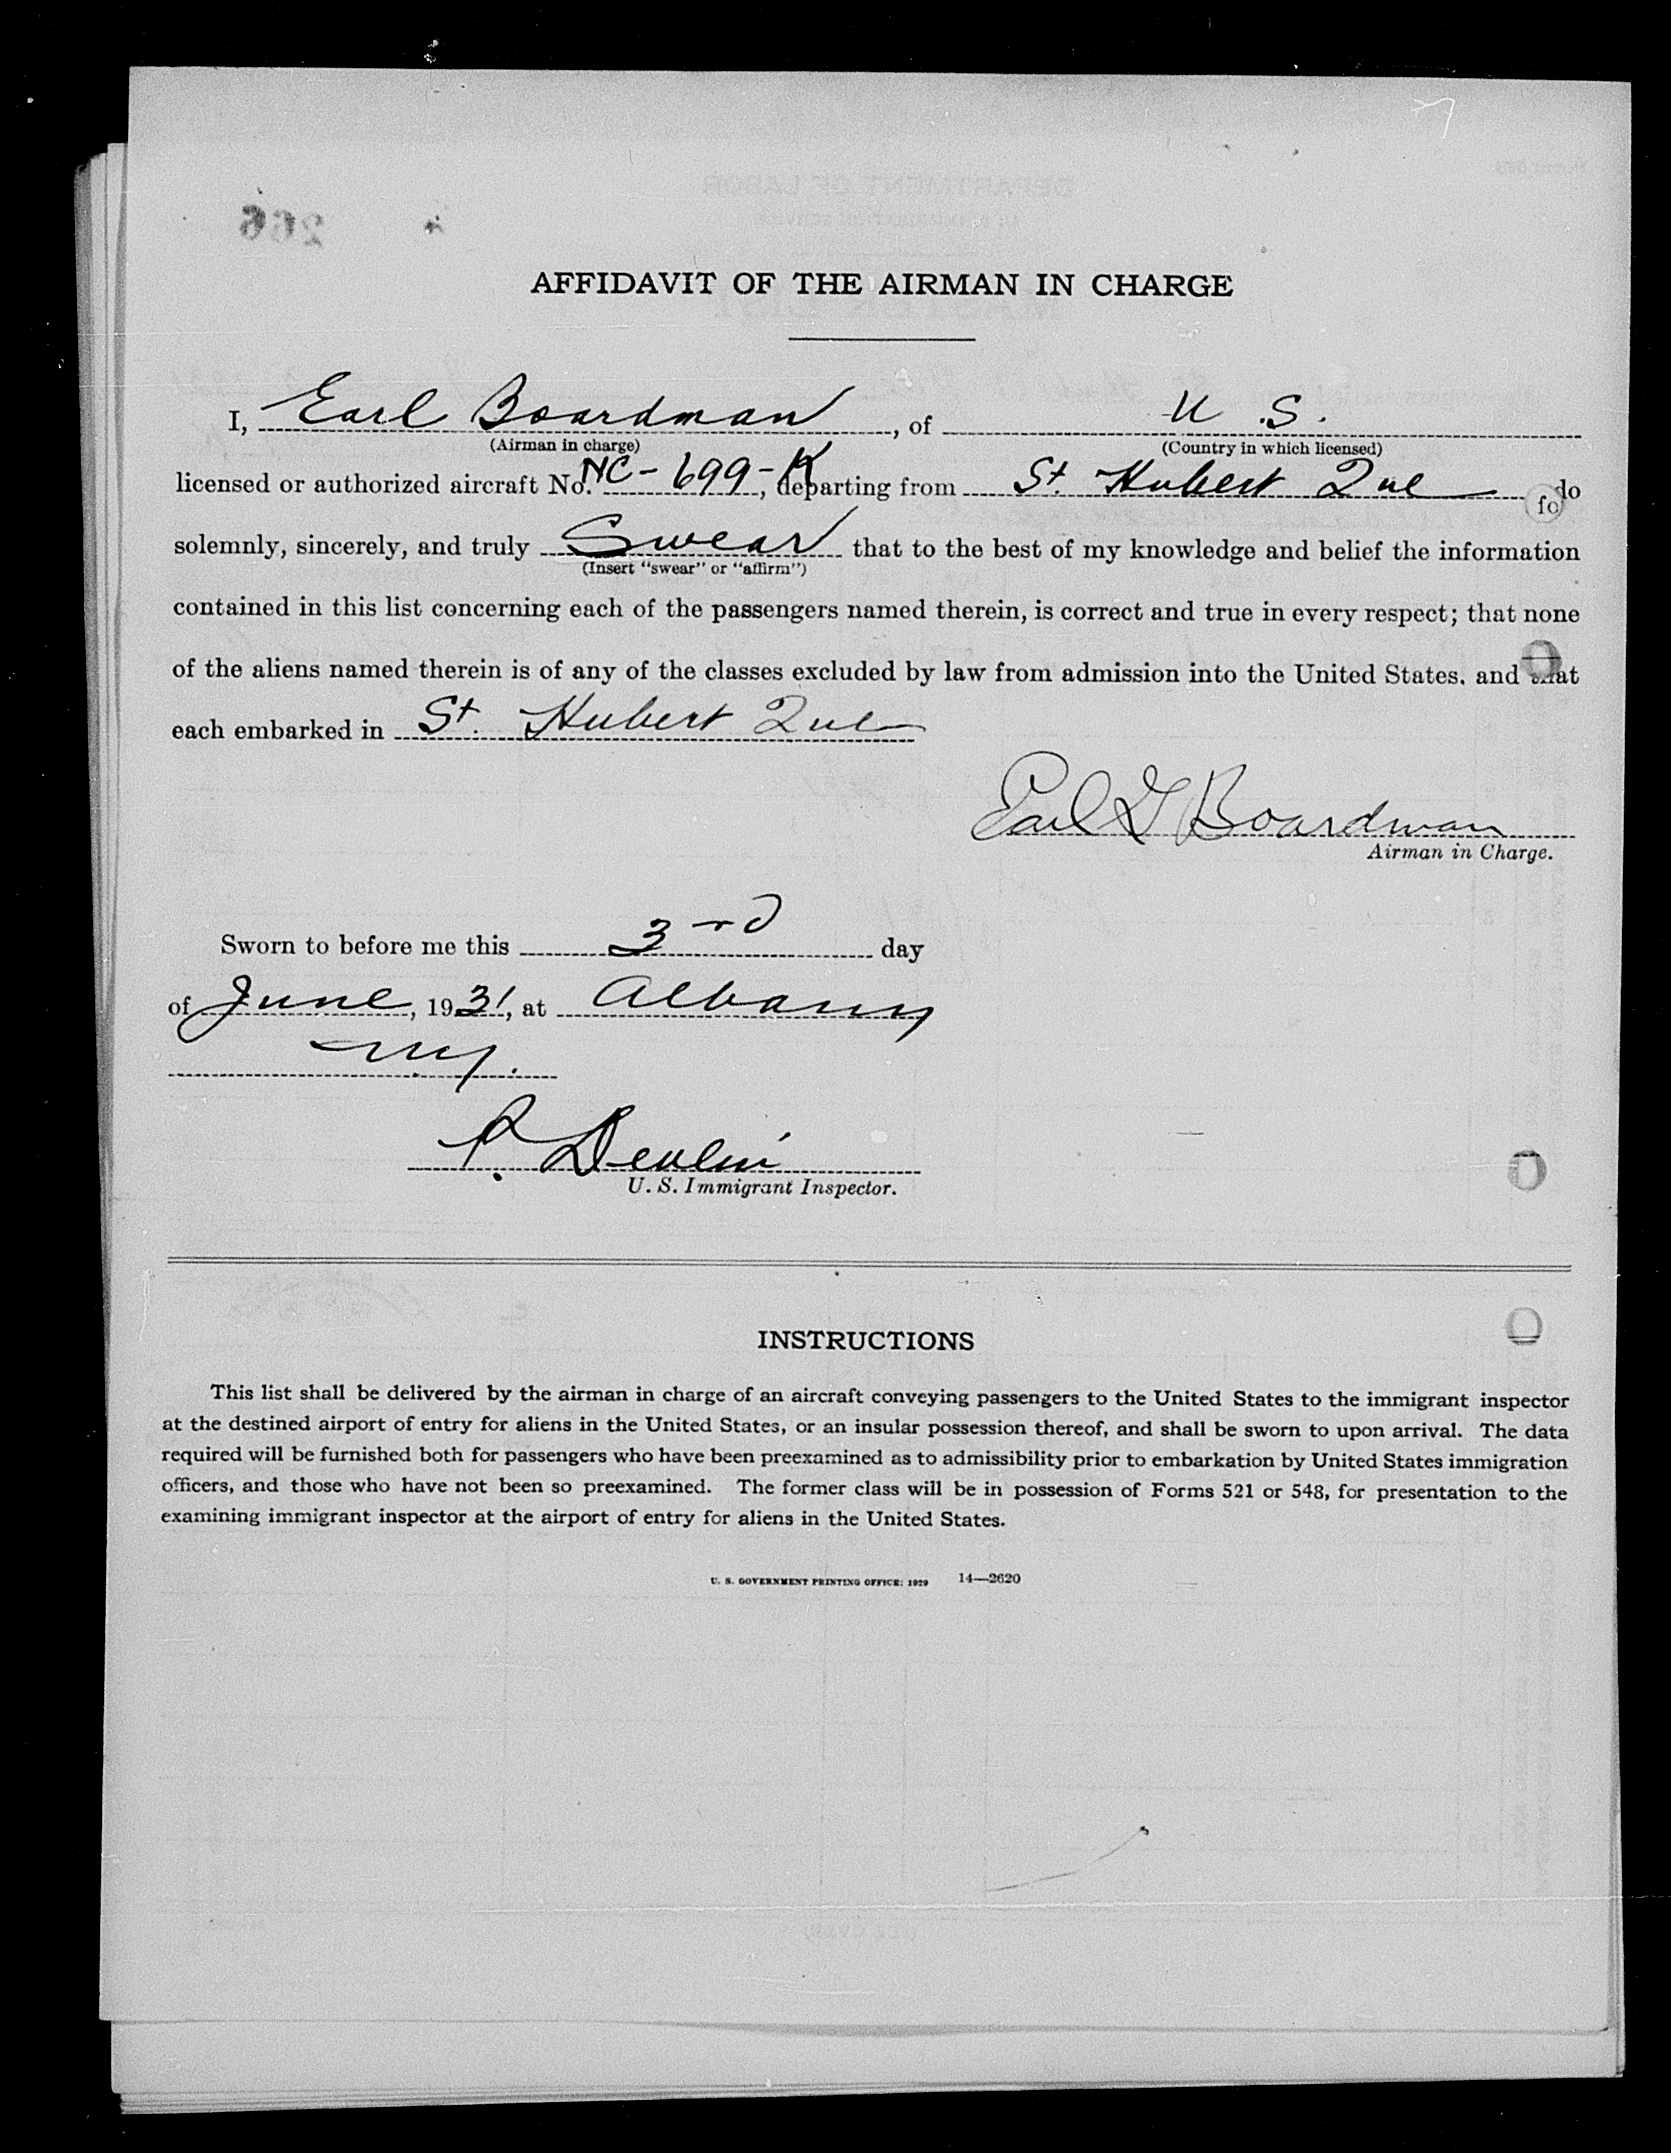 266
AFFIDAVIT OF THE AIRMAN IN CHARGE
I, Earl Boardman, of U. S.
(Airman in charge) (Country in which licensed)
licensed or authorized aircraft No. NC-699-K, departing from St. Hubert Que do
solemnly, sincerely, and truly Swear that to the best of my knowledge and belief the information
(Insert "swear" or "affirm")
contained in this list concerning each of the passengers named therein, is correct and true in every respect; that none
of the aliens named therein is of any of the classes excluded by law from admission into the United States, and that
each embarked in St. Hubert Que
Earl G Boardman
Airman in Charge.
Sworn to before me this 3rd day
of June, 1931, at Albany
N.Y.
P. Devlin
U. S. Immigrant Inspector.
INSTRUCTIONS
This list shall be delivered by the airman in charge of an aircraft conveying passengers to the United States to the immigrant inspector
at the destined airport of entry for aliens in the United States, or an insular possession thereof, and shall be sworn to upon arrival. The data
required will be furnished both for passengers who have been preexamined as to admissibility prior to embarkation by United States immigration
officers, and those who have not been so preexamined. The former class will be in possession of Forms 521 or 548, for presentation to the
examining immigrant inspector at the airport of entry for aliens in the United States.
U. S. GOVERNMENT PRINTING OFFICE: 1929 14—2620